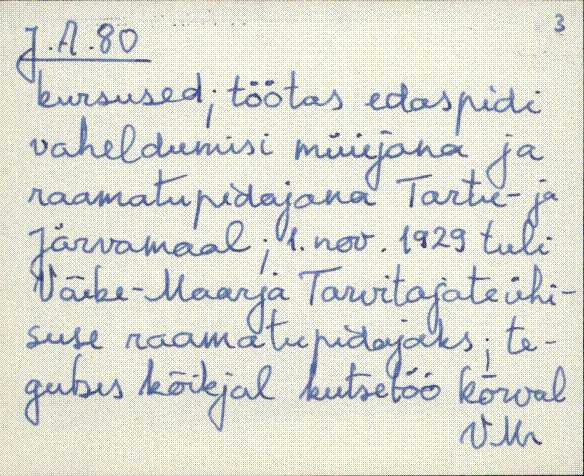 3
J.A.80
kursused; töötas edaspidi
vaheldumisi müüjana ja
raamatupidajana Tartu- ja
Järvamaal; 1. nov. 1929 tuli
Väike-Maarja Tarvitajateühi-
suse raamatupidajaks; te-
gutses kõikjal kutsetöö kõrval
VM